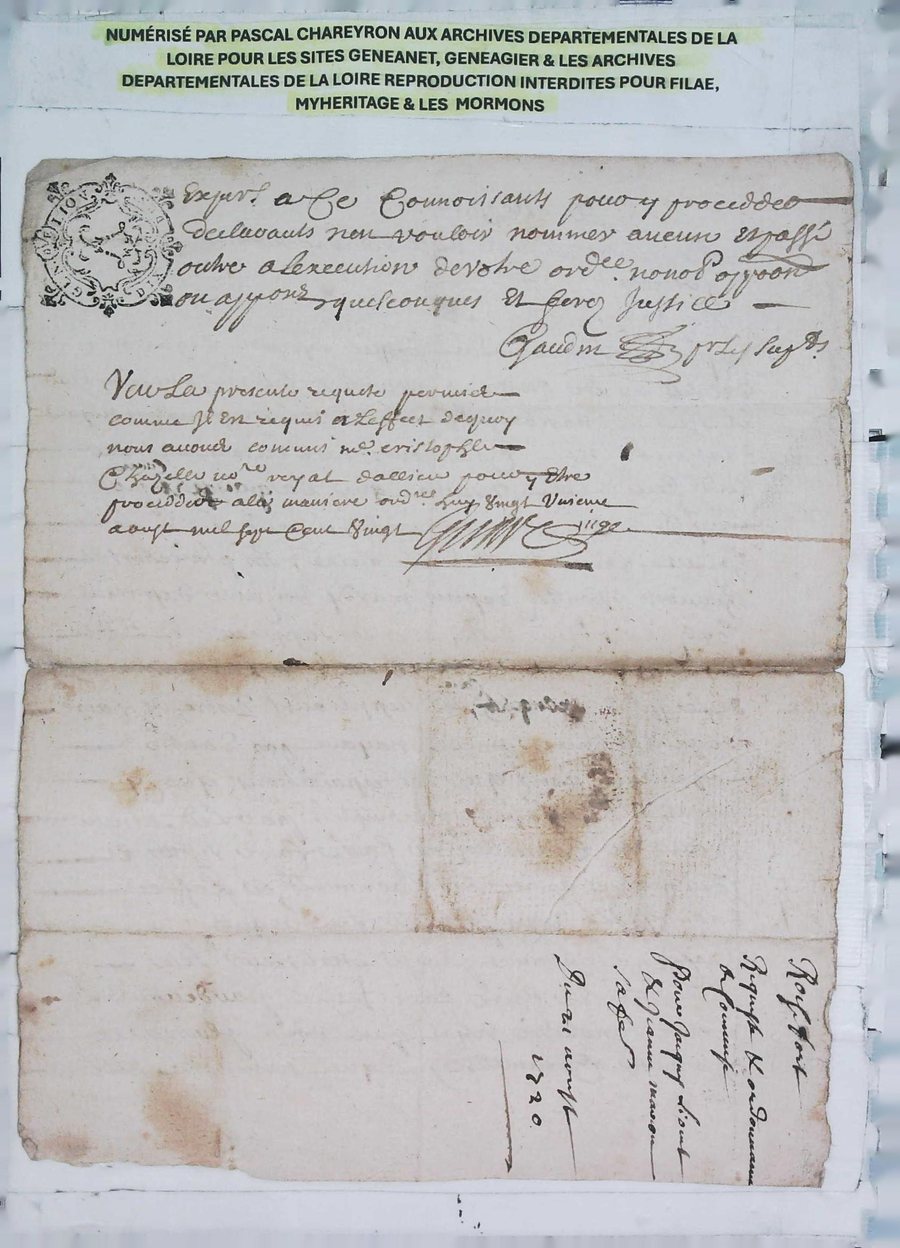 NUMÉRISÉ PAR PASCAL CHAREYRON AUX ARCHIVES DEPARTEMENTALES DE LA
LOIRE POUR LES SITES GENEANET, GENEAGIER & LES ARCHIVES
DEPARTEMENTALES DE LA LOIRE REPRODUCTION INTERDITES POUR FILAE,
MYHERITAGE & LES MORMONS
a Ce Connoissants pour y procedder
declarants nen vouloir nommer aucun Et passé
outre a lexecution de votre ord.ce nonob. oppoon
ou appon quelconques Et ferez Justice
Gaudin pr Les sup.ts
Veu La presente requete permis
comme Jl Est requis a Leffect dequoy
nous avons commis me. cristophle
Chazelle no.re royal dallieu pour y Etre
procedder a la maniere ord.re Ce Vingt Unieme
aoust mil sept Cent Vingt
Rochefort
Requeste & ordonnance
de Commise
Pour Jacques
& Jeanne
sa fe
Du 21 aoust
1720